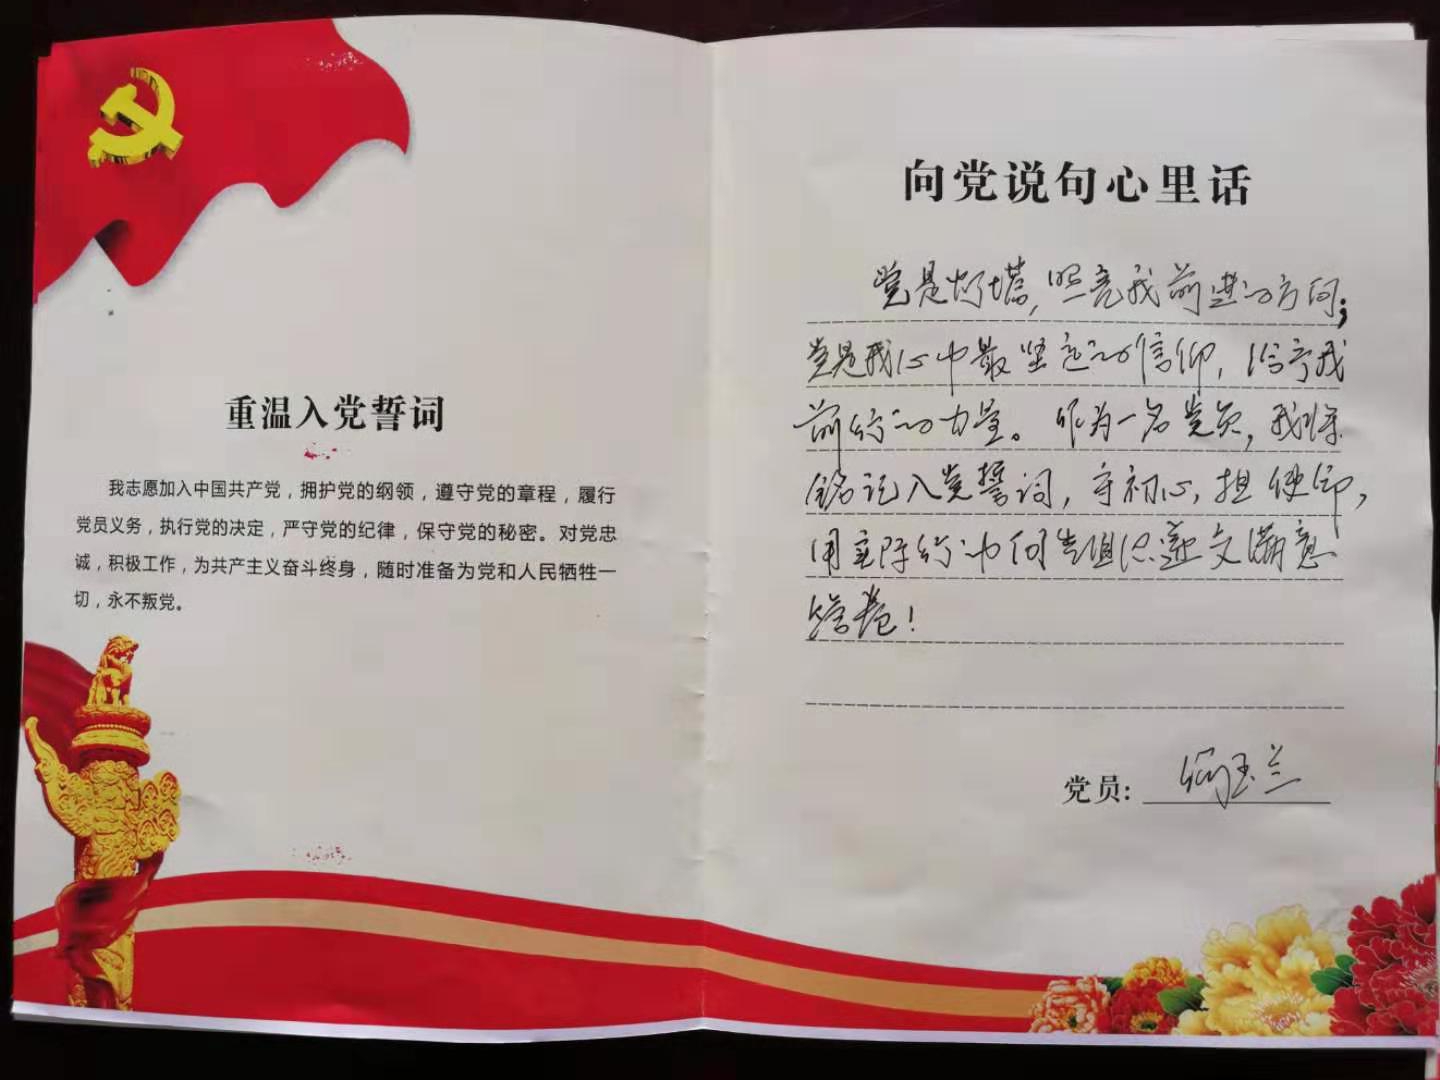 重温入党誓词
我志愿加入中国共产党，拥护党的纲领，遵守党的章程，履行
党员义务，执行党的决定，严守党的纪律，保守党的秘密。对党忠
诚，积极工作，为共产主义奋斗终身，随时准备为党和人民牺牲一
切，永不叛党。
向党说句心里话
党是灯塔，照亮我前进的方向；
党是我心中最坚定的信仰，给予我
前行的力量。作为一名党员，我将
铭记入党誓词，守初心，担使命，
用实际行动向党组织递交满意
答卷！
党员：玉兰